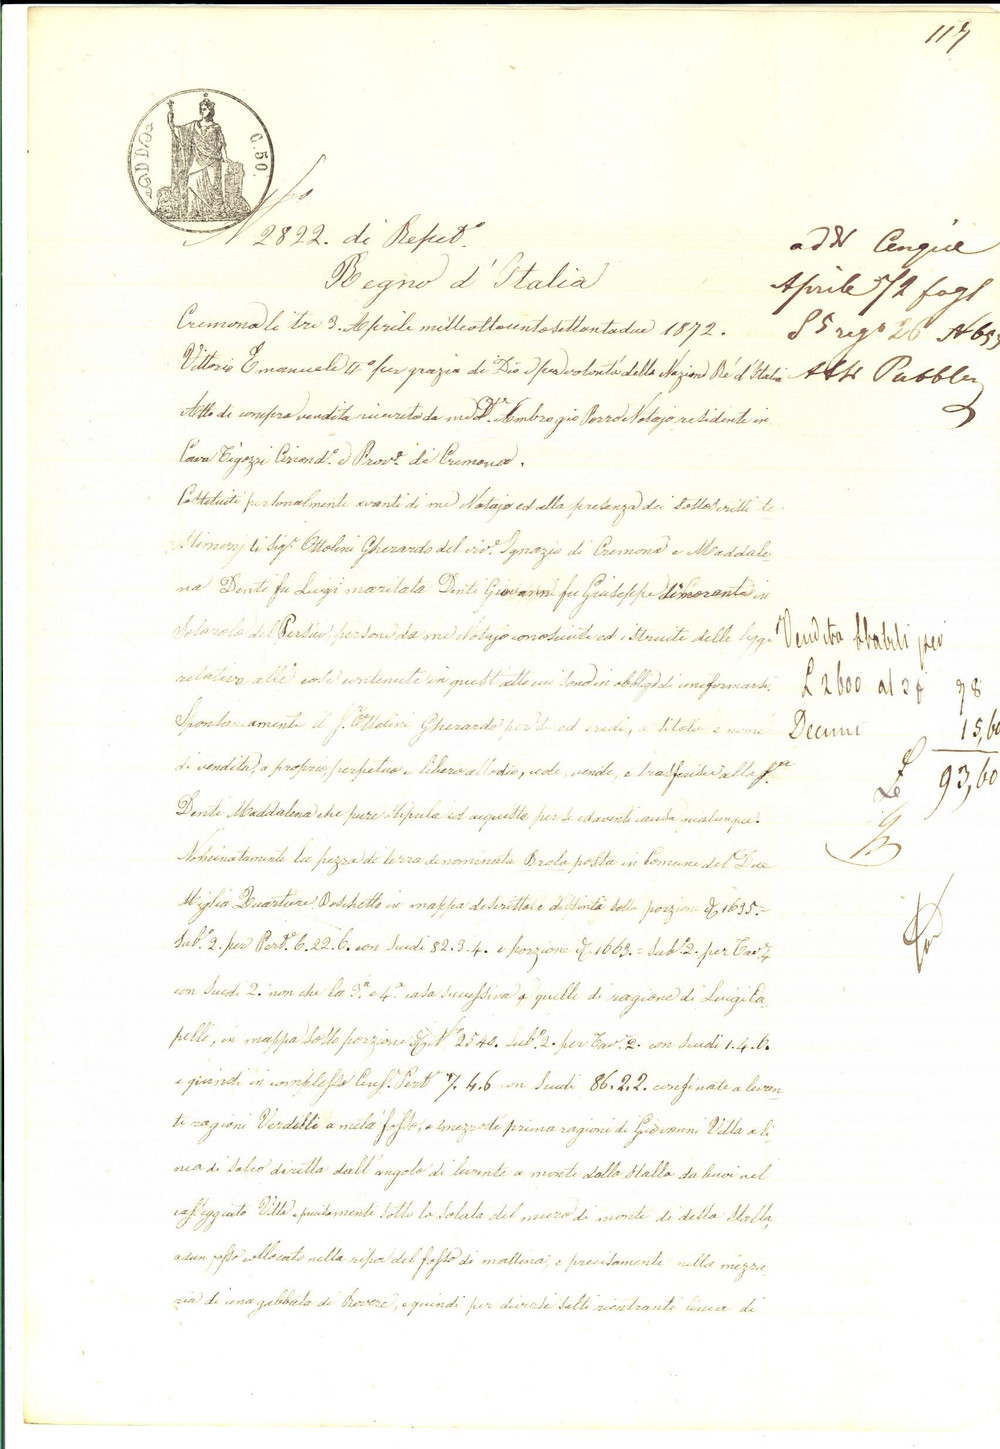 117
C. 50.
N° 2822. di Repert.°
Regno d'Italia
Cremona li tre 3. Aprile milleottocentosettantadue 1872.
Vittorio Emanuele 4° per grazia di Dio e per volontà della Nazione Ré d'Italia
Atto di compra vendita ricevuto da me D.r Ambrogio Porro Notajo residente in
Cava Tigozzi Circond.° e Prov.a di Cremona.
Costituiti personalmente avanti di me Notajo ed alla presenza dei sottoscritti te-
stimonj li Sig.ri Ottolini Gherardo del viv.e Ignazio di Cremona e Maddale-
na Denti fu Luigi maritata Denti Giovanni fu Giuseppe dimorante in
Solarolo del Persico, persone da me Notajo conosciute ed istruite delle leggi
relative alle cose contenute in quest'atto cui sono in obbligo di uniformarsi.
Spontaneamente il S.r Ottolini Gherardo per se ed eredi, a titolo e nome
di vendita, a proprio perpetuo e libero allodio, cede, vende, e trasferisce alla S.ra
Denti Maddalena che pure stipula ed acquista per se ed aventi causa qualunque.
Nominatamente la pezza di terra denominata Brolo posta in Comune del Due
Miglia Quartiere Boschetto in mappa descritta e distinta sotto porzione di 1635=
Sub.° 2. per Pert.e 6. 22. 6. con Scudi 82. 3. 4. e porzione di 1663.= Sub.° 2. per Tav.e 7
con Scudi 2. non che la 3.a e 4.a casa successiva a quelle di ragione di Luigi Ca-
pelli, in mappa sotto porzione di N.° 2540. Sub.° 2. per Tav.e 2. con Scudi 1. 4. 6.
e quindi in complesso Cens.e Pert.e 7. 4. 6 con Scudi 86. 2. 2. confinate a levan-
te ragioni Verdelli a metà fosso, a mezzodì prima ragioni di Giovanni Villa a li-
nea di salvo diretta dall'angolo di levante a monte della stalla da buoi nel
casseggiato Villa e precisamente sotto la solata del muro di monte di detta stalla,
ad un fosso collocato nella ripa del fosso di mattina, e precisamente nella mezze-
ria di una gabbata di Rovere, e quindi per diversi salti rientranti linea di
add Cinque
Aprile 72 fogl
85 reg° 26 N 653
Atti Pubblici
Vendita stabili per
L 2600 al 3% 78
Decimi 15,60
L 93,60